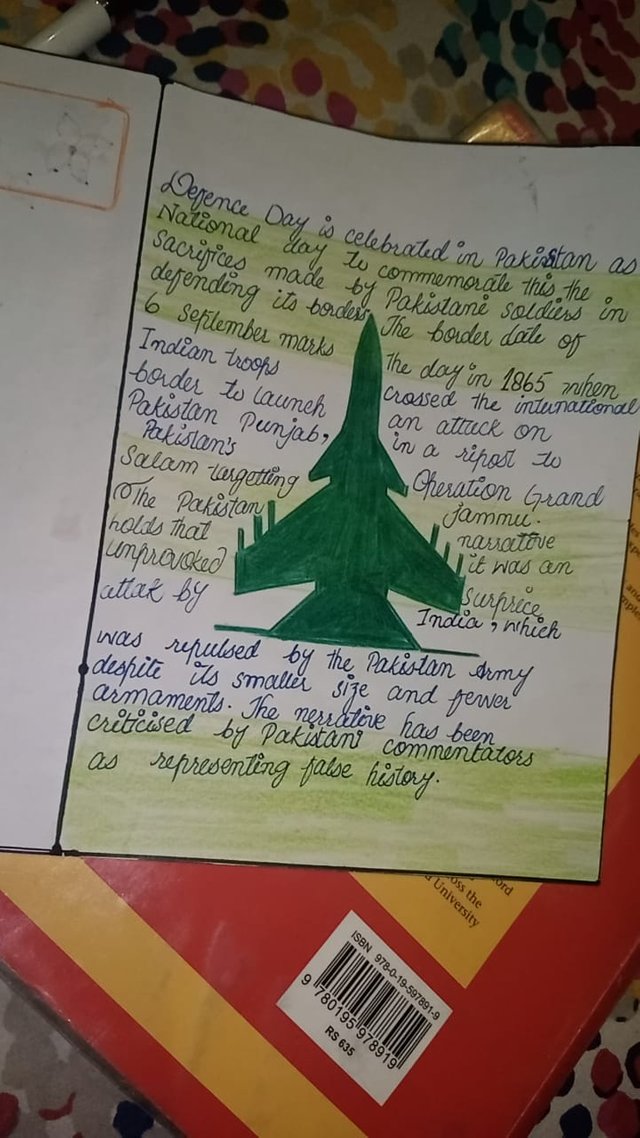 Defence Day is celebrated in Pakistan as
National day to commemorate this the
sacrifices made by Pakistani soldiers in
defending its borders. The border date of
6 september marks the day in 1865 when
Indian troops crossed the international
border to launch an attack on
Pakistan Punjab, in a ripost to
Pakistan's Operation Grand
Salam targetting jammu.
The Pakistan narrative
holds that it was an
unprovoked surprice
attak by India, which
was repulsed by the Pakistan Army
despite its smaller size and fewer
armaments. The nerrative has been
criticised by Pakistani commentators
as representing false history.
oss the
University
ISBN 978-0-19-597891-9
9 780195 978919
RS 635